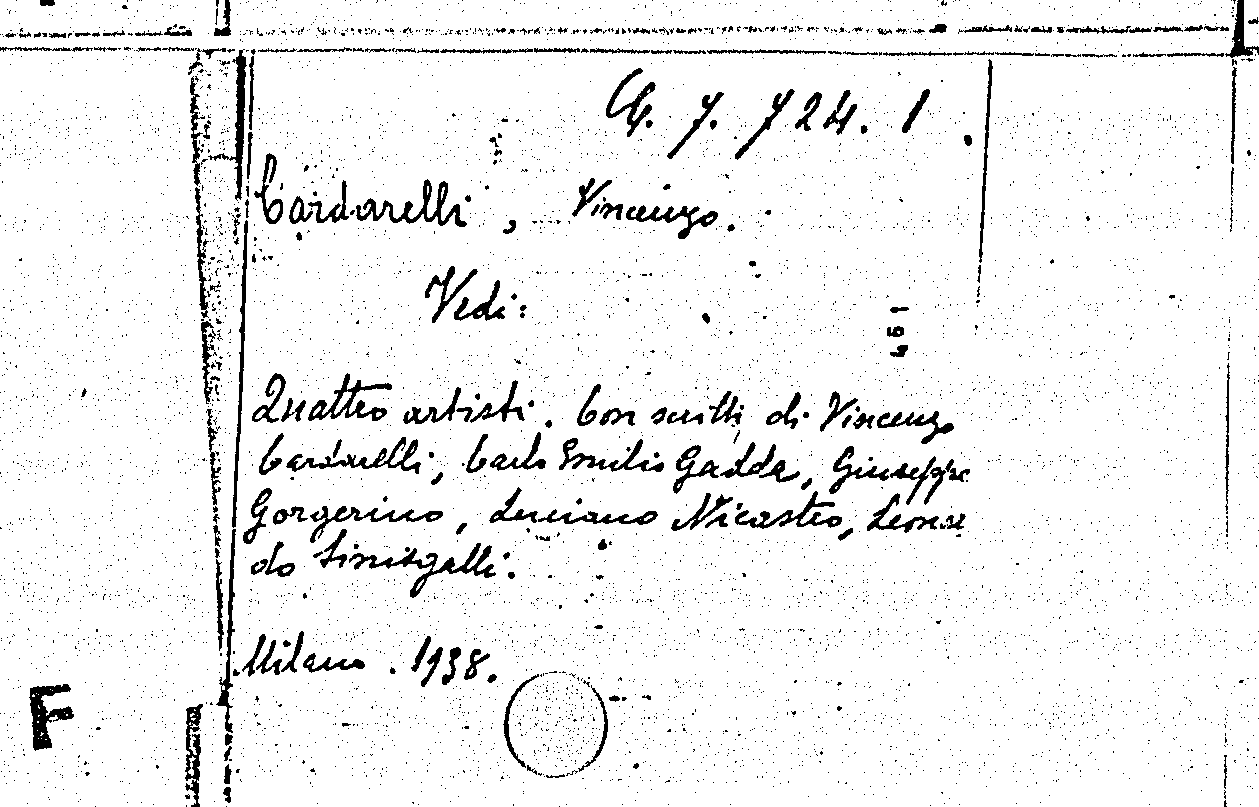 G. 7. 724. 1.
Cardarelli, Vincenzo.
Vedi:
Quattro artisti. Con scritti di Vincenzo
Cardarelli, Carlo Emilio Gadda, Giuseppe
Gorgerino, Luciano Nicastro, Leonar
do Sinisgalli.
Milano. 1938.
F